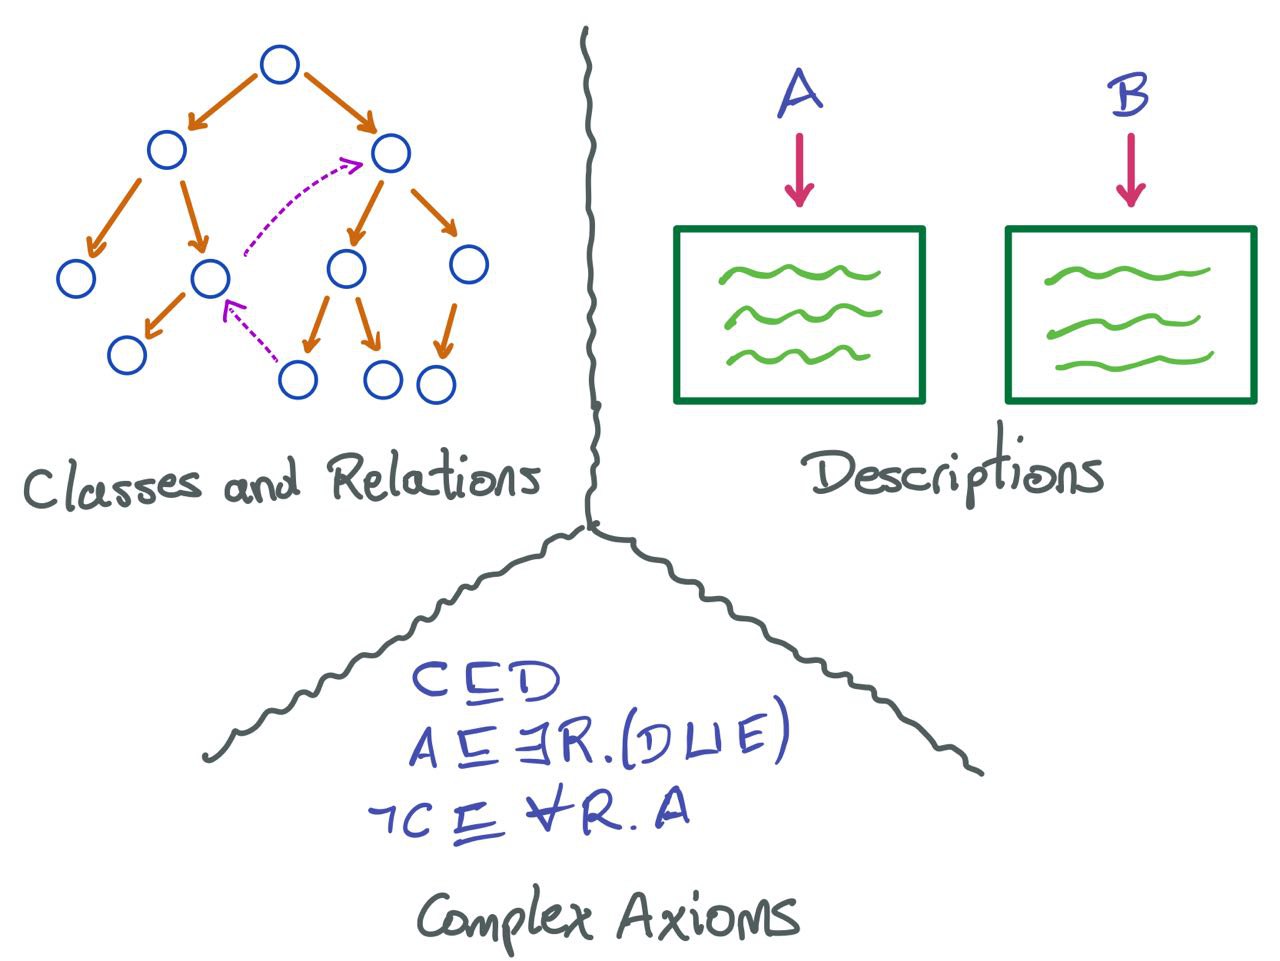 A
B
Classes and Relations
Descriptions
C ⊑ D
A ⊑ ∃R.(D ⊔ E)
¬C ⊑ ∀R.A
Complex Axioms